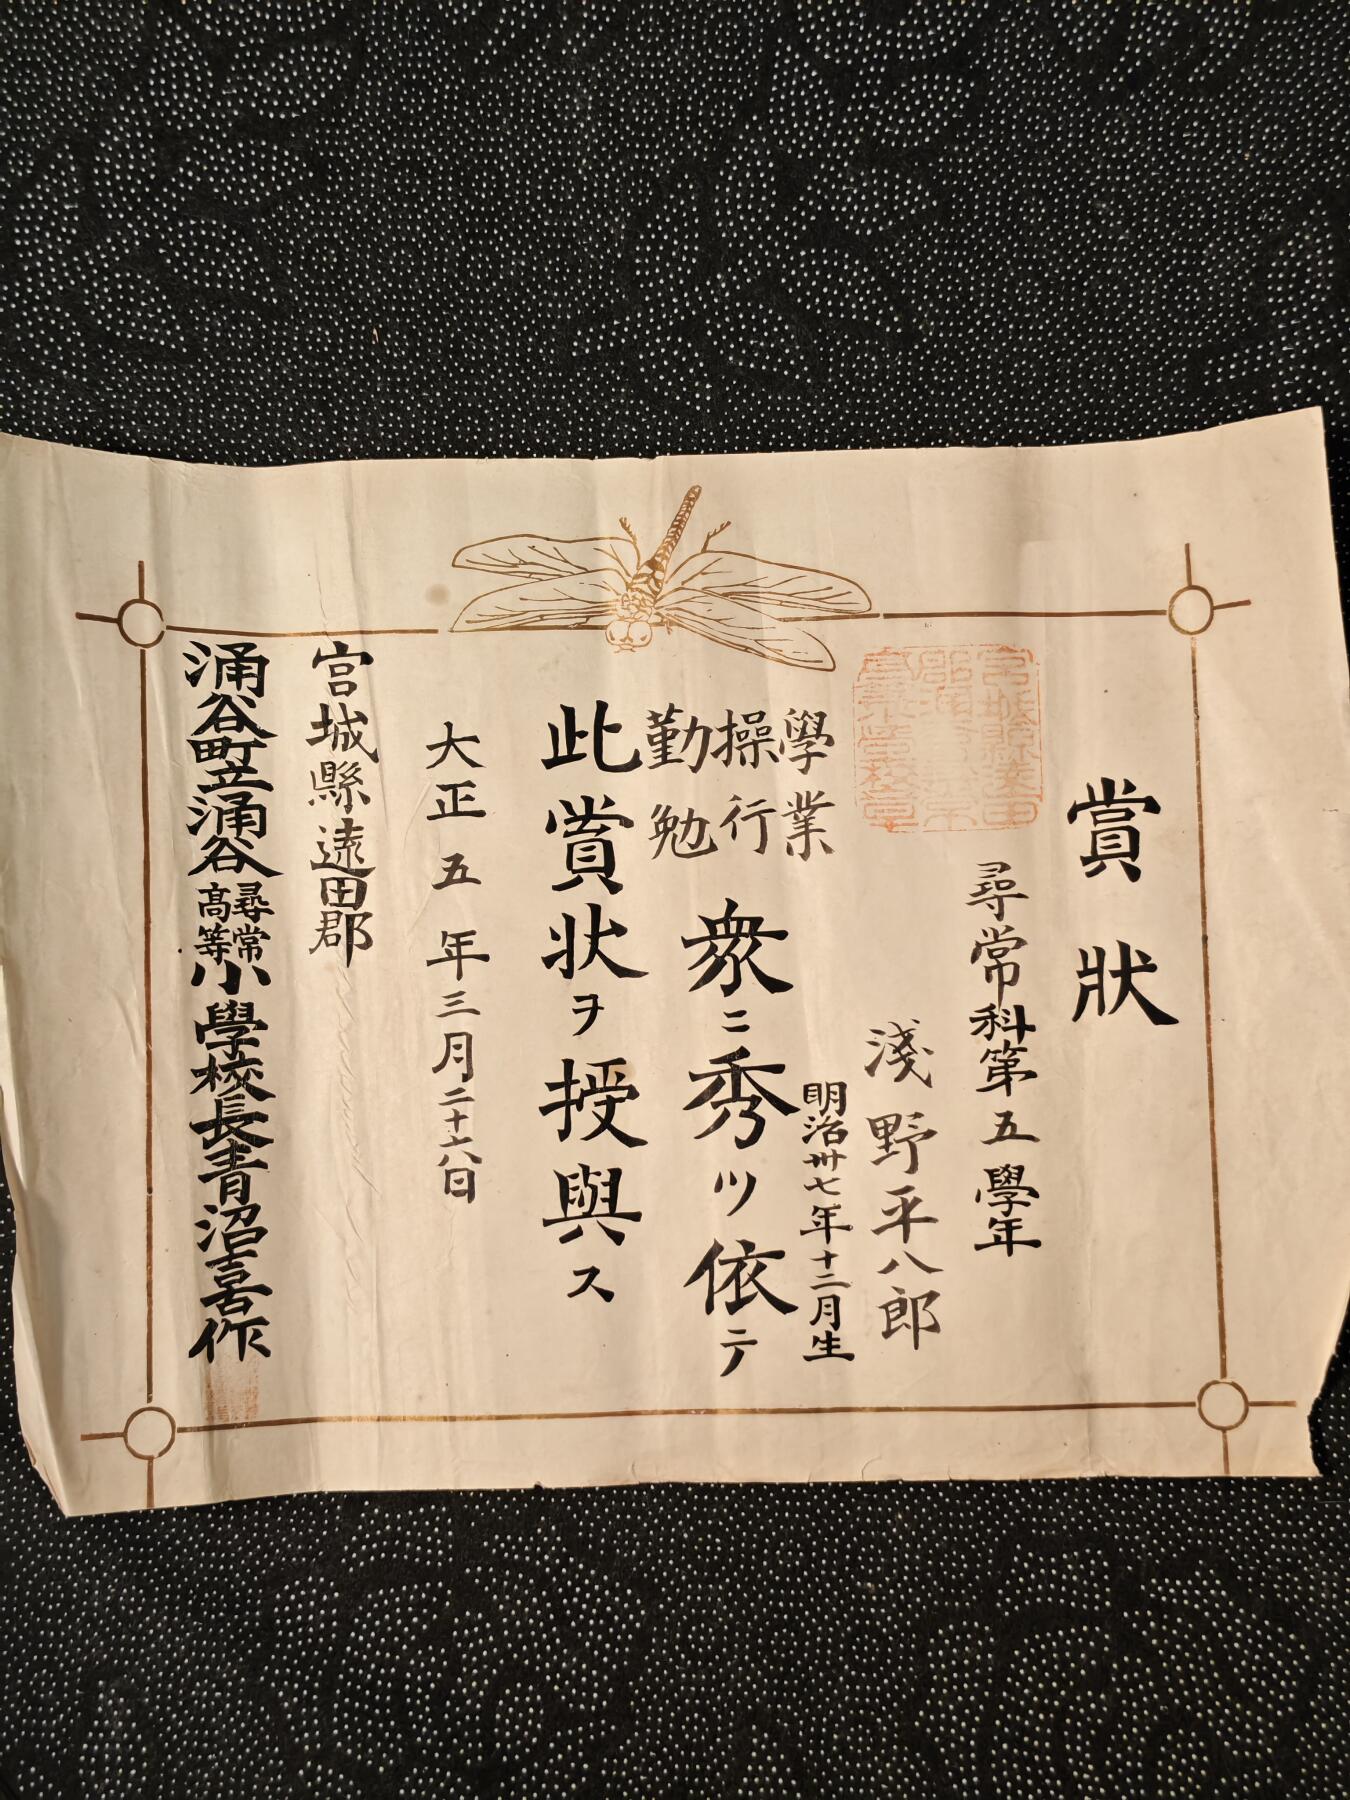 賞狀
尋常科第五學年
淺野平八郎
明治卅七年十二月生
學業
操行
勤勉
衆ニ秀ツ依テ
此賞状ヲ授與ス
大正五年三月二十六日
宮城縣遠田郡
涌谷町立涌谷尋常高等小學校長青沼喜作